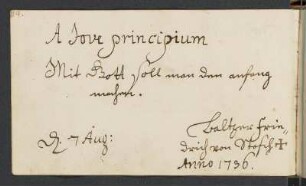 A Jove principium
Mit Gott soll man den anfang
machen.
D. 7 Aug:
Baltzer Frie-
drich von Stosch
Anno 1736.